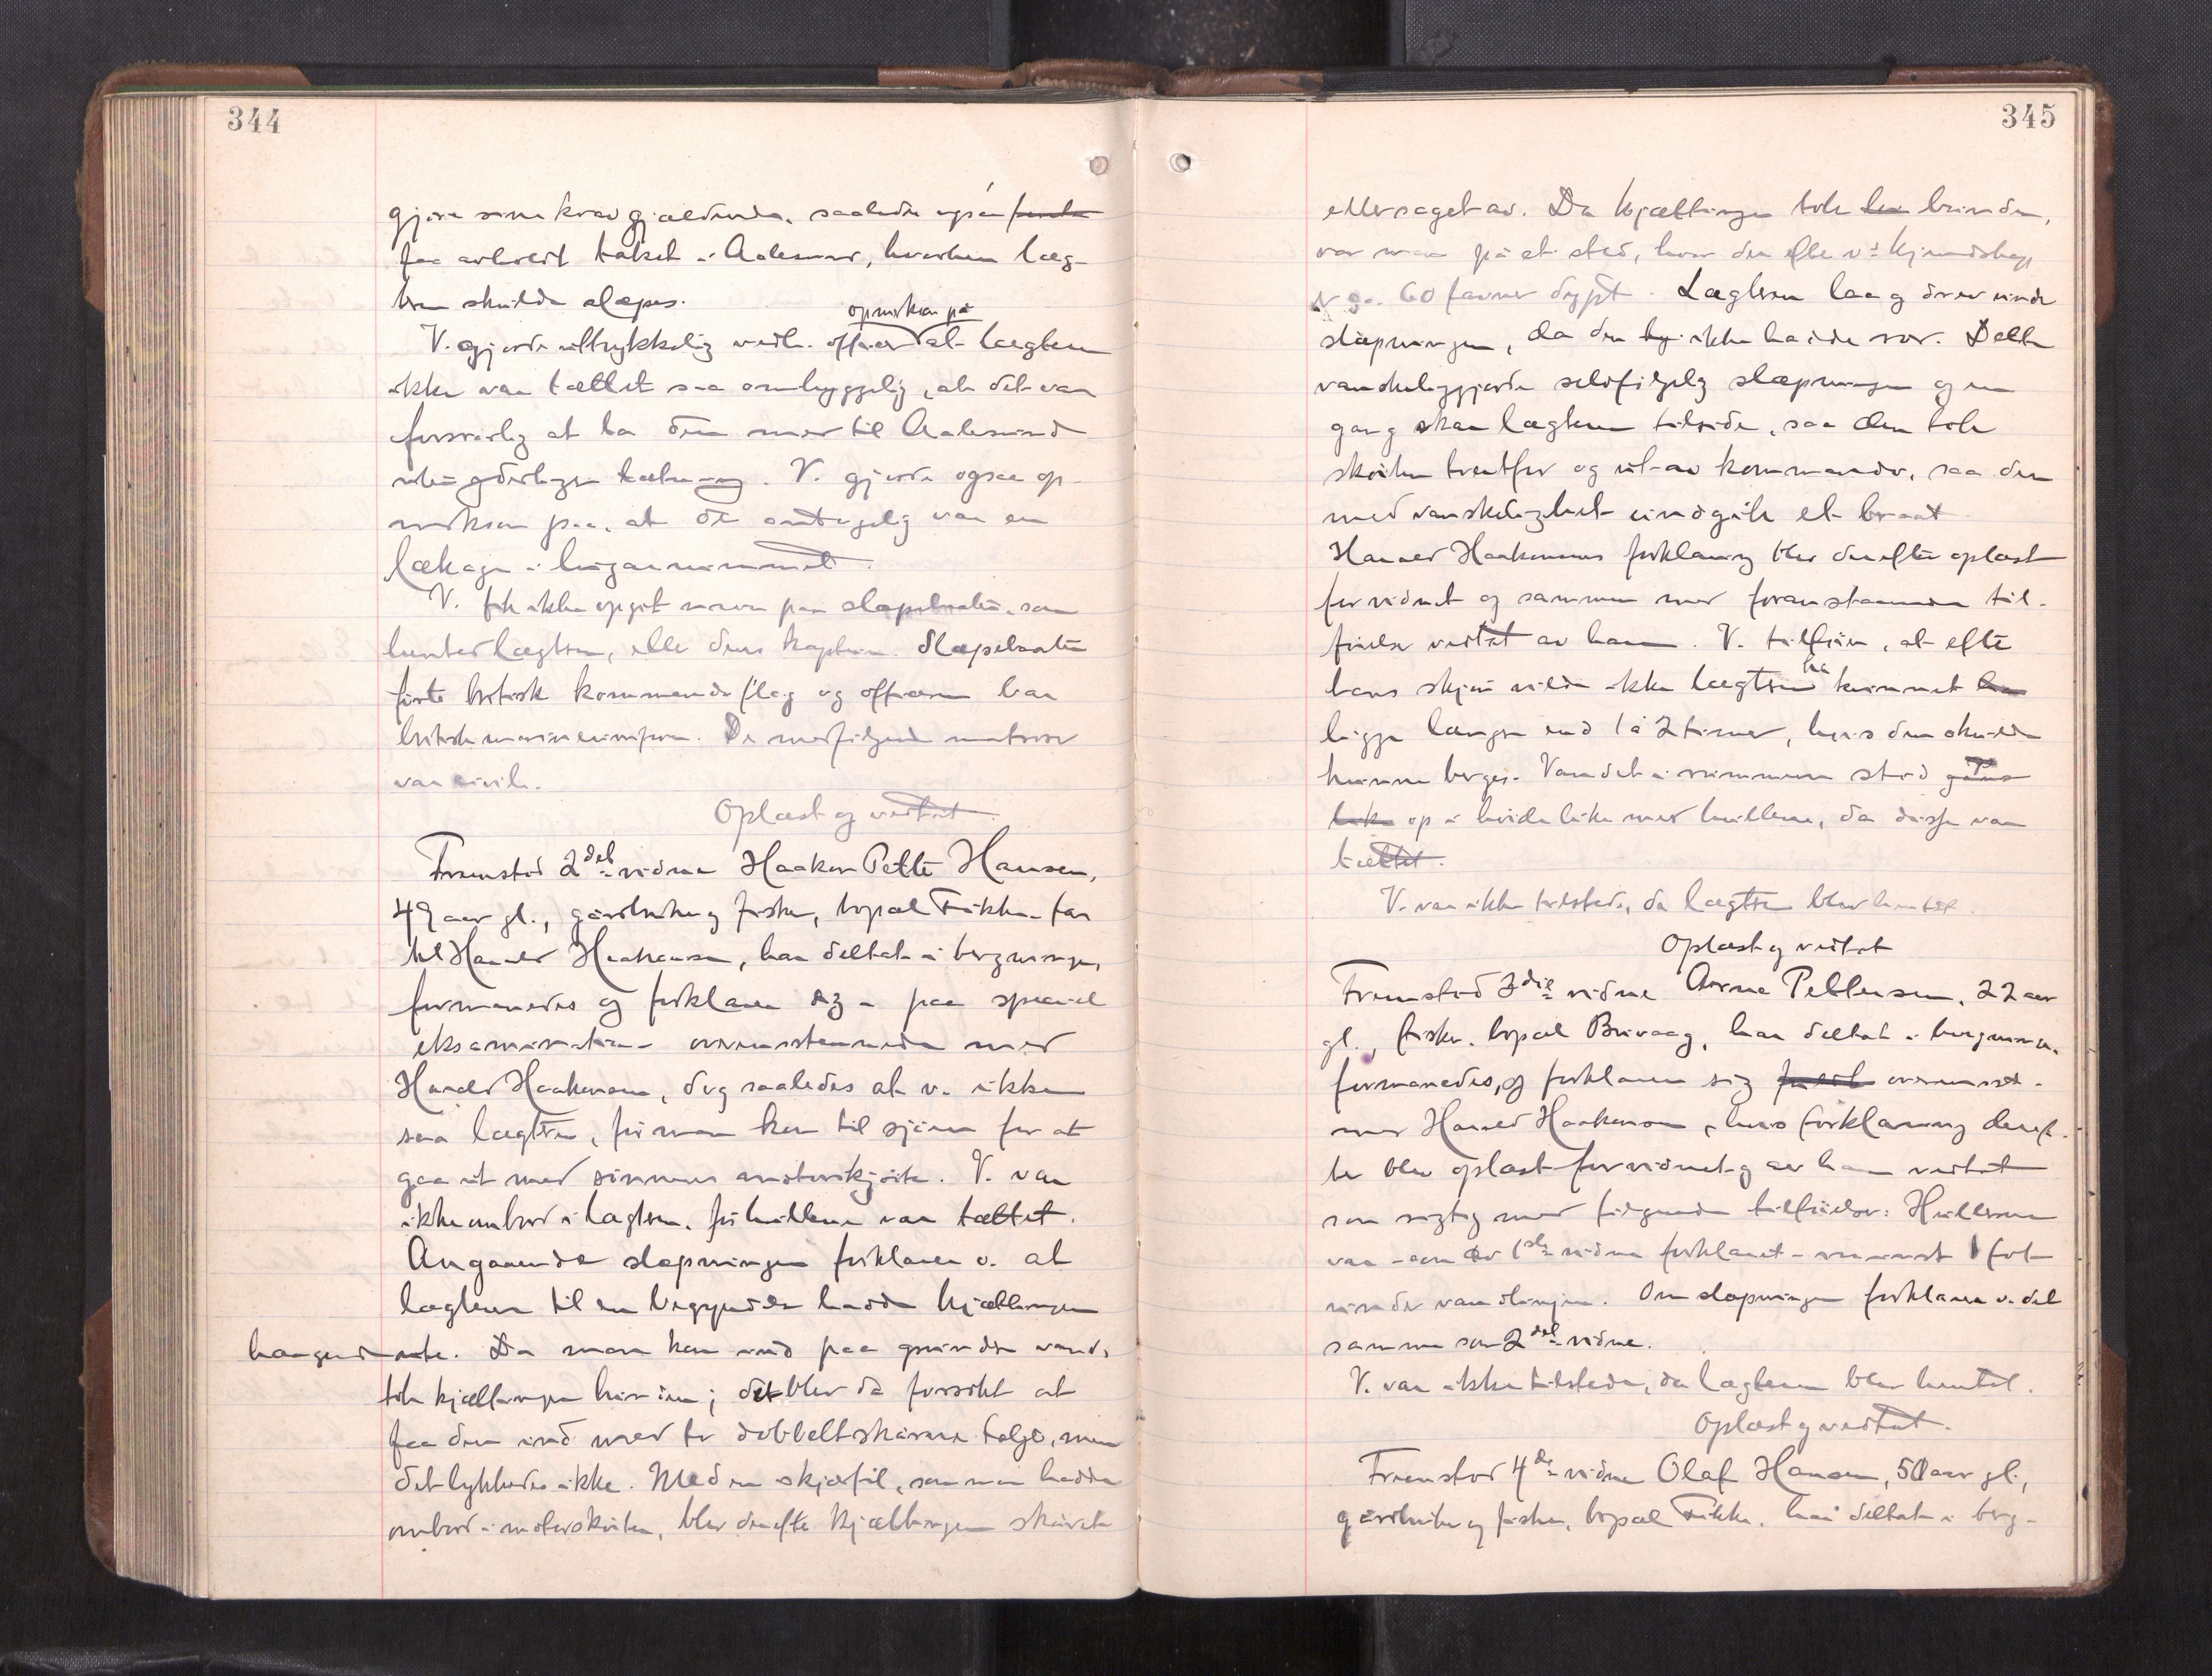 344
gjøre sine krav gjældende, saaledes ogsaa
faa avholdt takst i Aalesund, hvorhen læg-
teren skulde slæpes.
opmerksom på
V. gjorde uttrykkelig vedk. officer at lægteren
ikke var tættet saa omhyggelig, at det var
forsvarlig at ta den med til Aalesund
uten yderligere tætning. V. gjorde ogsaa op-
merksom paa, at det antagelig var en
lækage i lugarrummet.
V. fik ikke opgit navn paa slæpebaaten, som
hentet lægteren, eller dens kaptein. Slæpebaaten
førte britisk kommandoflag og officeren bar
britisk marineuniform. De medfølgende matroser
var civile.
Oplæst og vedtat.
Fremstod 2det vidne Haakon Petter Hansen,
49 aar gl., gårdbruker og fisker, bopæl Fikke. far
til Harald Haakonsen, har deltat i bergningen,
formanedes og forklarer sig - paa speciel
eksamination - overensstemmende med
Harald Haakonsen, dog saaledes at v. ikke
saa lægteren, før man kom til sjøen for at
gaa ut med sønnens motorskjøite. V. var
ikke ombord i lægteren, før hullene var tættet.
Angaaende slæpningen forklarer v. at
lægteren til en begyndelse hadde kjættingen
hængende ute. Da man kom ind paa grundere vand,
tok kjættingen bunden; det blev da forsøkt at
faa den ind med to dobbeltskaarne taljer, men
det lykkedes ikke. Med en skjærfil, som man hadde
ombord i motorskøiten, blev derefter kjættingen skåret
345
eller saget av. Da kjættingen tok bunden,
var man på et sted, hvor der efter v's kjendskap
er ca. 60 favner dypt. Lægteren laa og drev under
slæpningen, da den ikke hadde ror. Dette
vanskeliggjorde selvfølgelig slæpningen og en
gang skar lægteren tilside, saa den tok
skøiten tvertfor og ut av kommando, saa den
med vanskelighet undgik et braat
Harald Haakonsens forklaring blev derefter oplæst
for vidnet og sammen med foranstaaende til-
føielse vedtat av ham. V. tilføier, at efter
hans skjøn vilde ikke lægteren ha kunnet
ligge længer end 1 à 2 timer, hvis den skulde
kunne berges. Vandet i rummene stod
op i høide like med hullene, da disse var
tættet.
V. var ikke tilstede, da lægteren blev hentet.
Oplæst og vedtat
Fremstod 3die vidne Arne Pettersen, 22 aar
gl., fisker, bopæl Buvaag, har deltat i bergningen,
formanedes, og forklarer sig overensst.
med Harald Haakonsen, hvis forklaring deref-
ter blev oplæst for vidnet og av ham vedtat
som rigtig med følgende tilføielser: Hullerne
var - som av 1ste vidne forklaret - mindst 1 fot
under vandlinjen. Om slæpningen forklarer v. det
samme som 2det vidne.
V. var ikke tilstede, da lægteren blev hentet.
Oplæst og vedtat.
Fremstod 4de vidne Olaf Hansen, 50 aar gl.,
gårdbruker og fisker, bopæl Fikke, har deltat i berg-